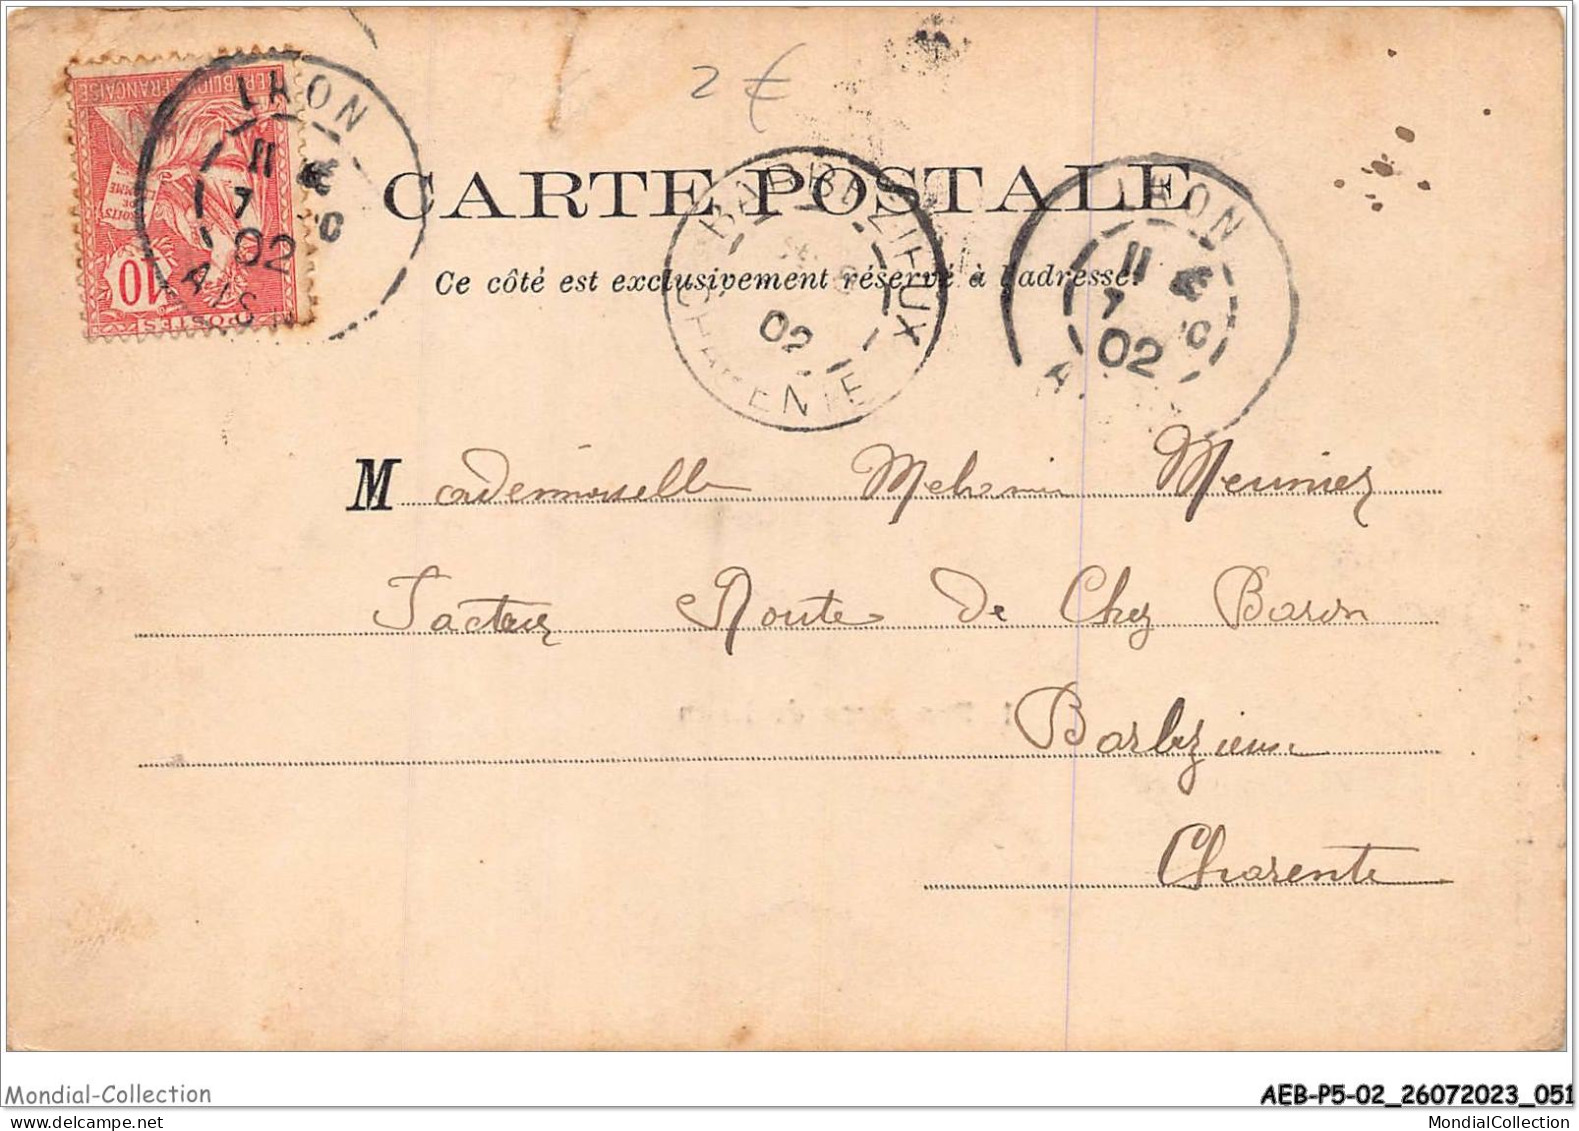 REPUBLIQUE FRANÇAISE
DROITS DE L'HOMME
10
POSTES
LAON
11
7
02
AISNE
2 €
CARTE POSTALE
Ce côté est exclusivement réservé à l'adresse.
BARBEZIEUX
02
CHARENTE
LAON
11
7
02
Mademoiselle Melanie Meunier
Facteur Route de Chez Baron
Barbezieux
Charente
Mondial-Collection
AEB-P5-02_26072023_051
MondialCollection